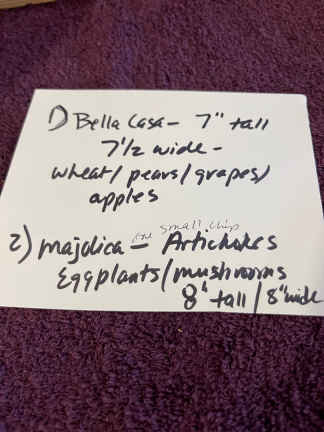 1) Bella Casa - 7" tall
7 1/2 wide -
wheat/pears/grapes/
apples
one small chip
2) majolica - Artichokes
Eggplants/mushrooms
8" tall / 8" wide